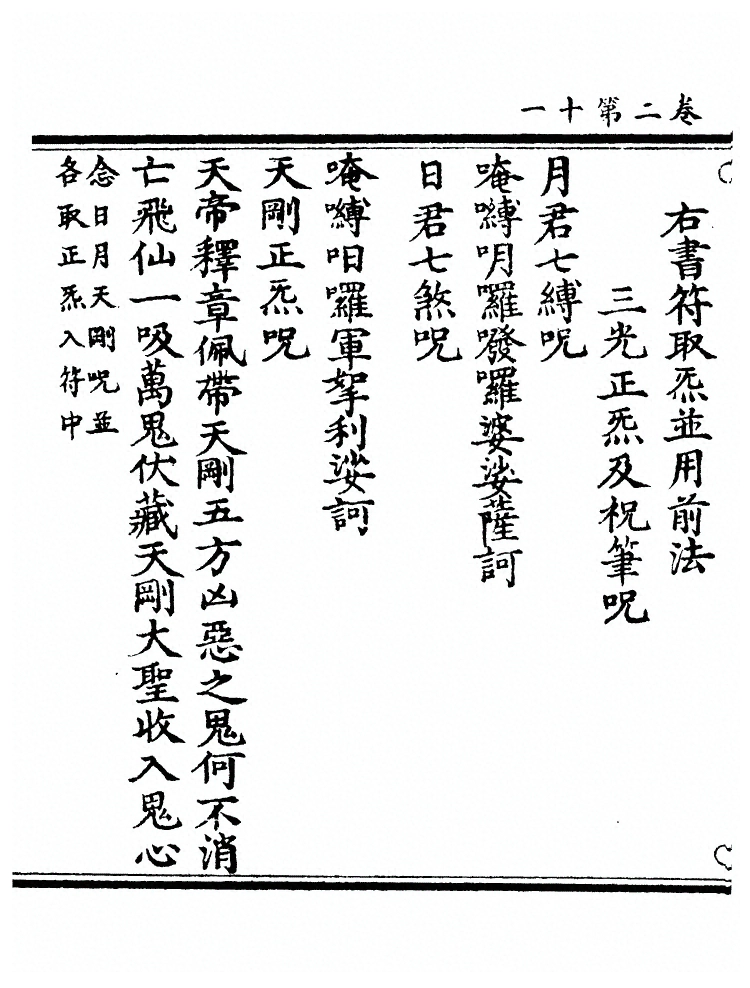 卷二第十一
右書符取炁並用前法
三光正炁及祝筆呪
月君七縛呪
唵嚩明囉發囉婆娑薩訶
日君七煞呪
唵嚩囉軍拏利娑訶
天剛正炁呪
天帝釋章佩帶天剛五方凶惡之鬼何不消
亡飛仙一吸萬鬼伏藏天剛大聖收入鬼心
念日月天剛呪並
各取正炁入符中